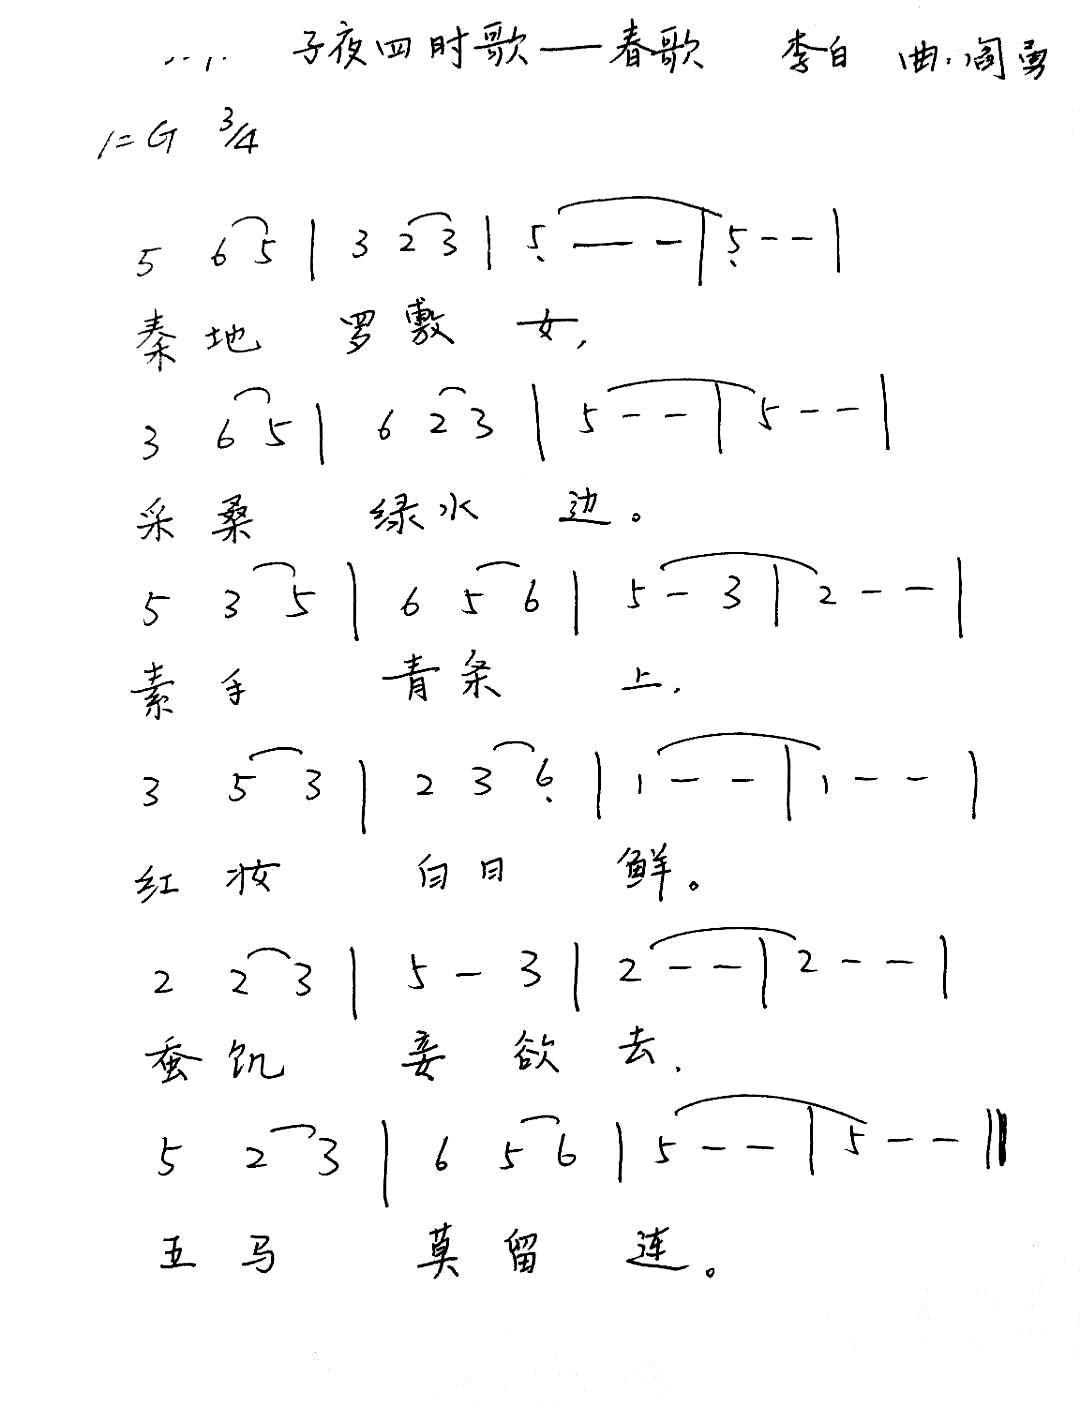 子夜四时歌——春歌 李白 曲:阎勇
1=G 3/4
5 6 5 | 3 2 3 | 5̣ — - | 5̣ - - |
秦地 罗敷 女,
3 6 5 | 6 2 3 | 5 - - | 5 - - |
采桑 绿水 边。
5 3 5 | 6 5 6 | 5 - 3 | 2 - - |
素手 青条 上,
3 5 3 | 2 3 6̣ | 1 - - | 1 - - |
红妆 白日 鲜。
2 2 3 | 5 - 3 | 2 - - | 2 - - |
蚕饥 妾 欲 去,
5 2 3 | 6 5 6 | 5 - - | 5 - - ‖
五马 莫留 连。